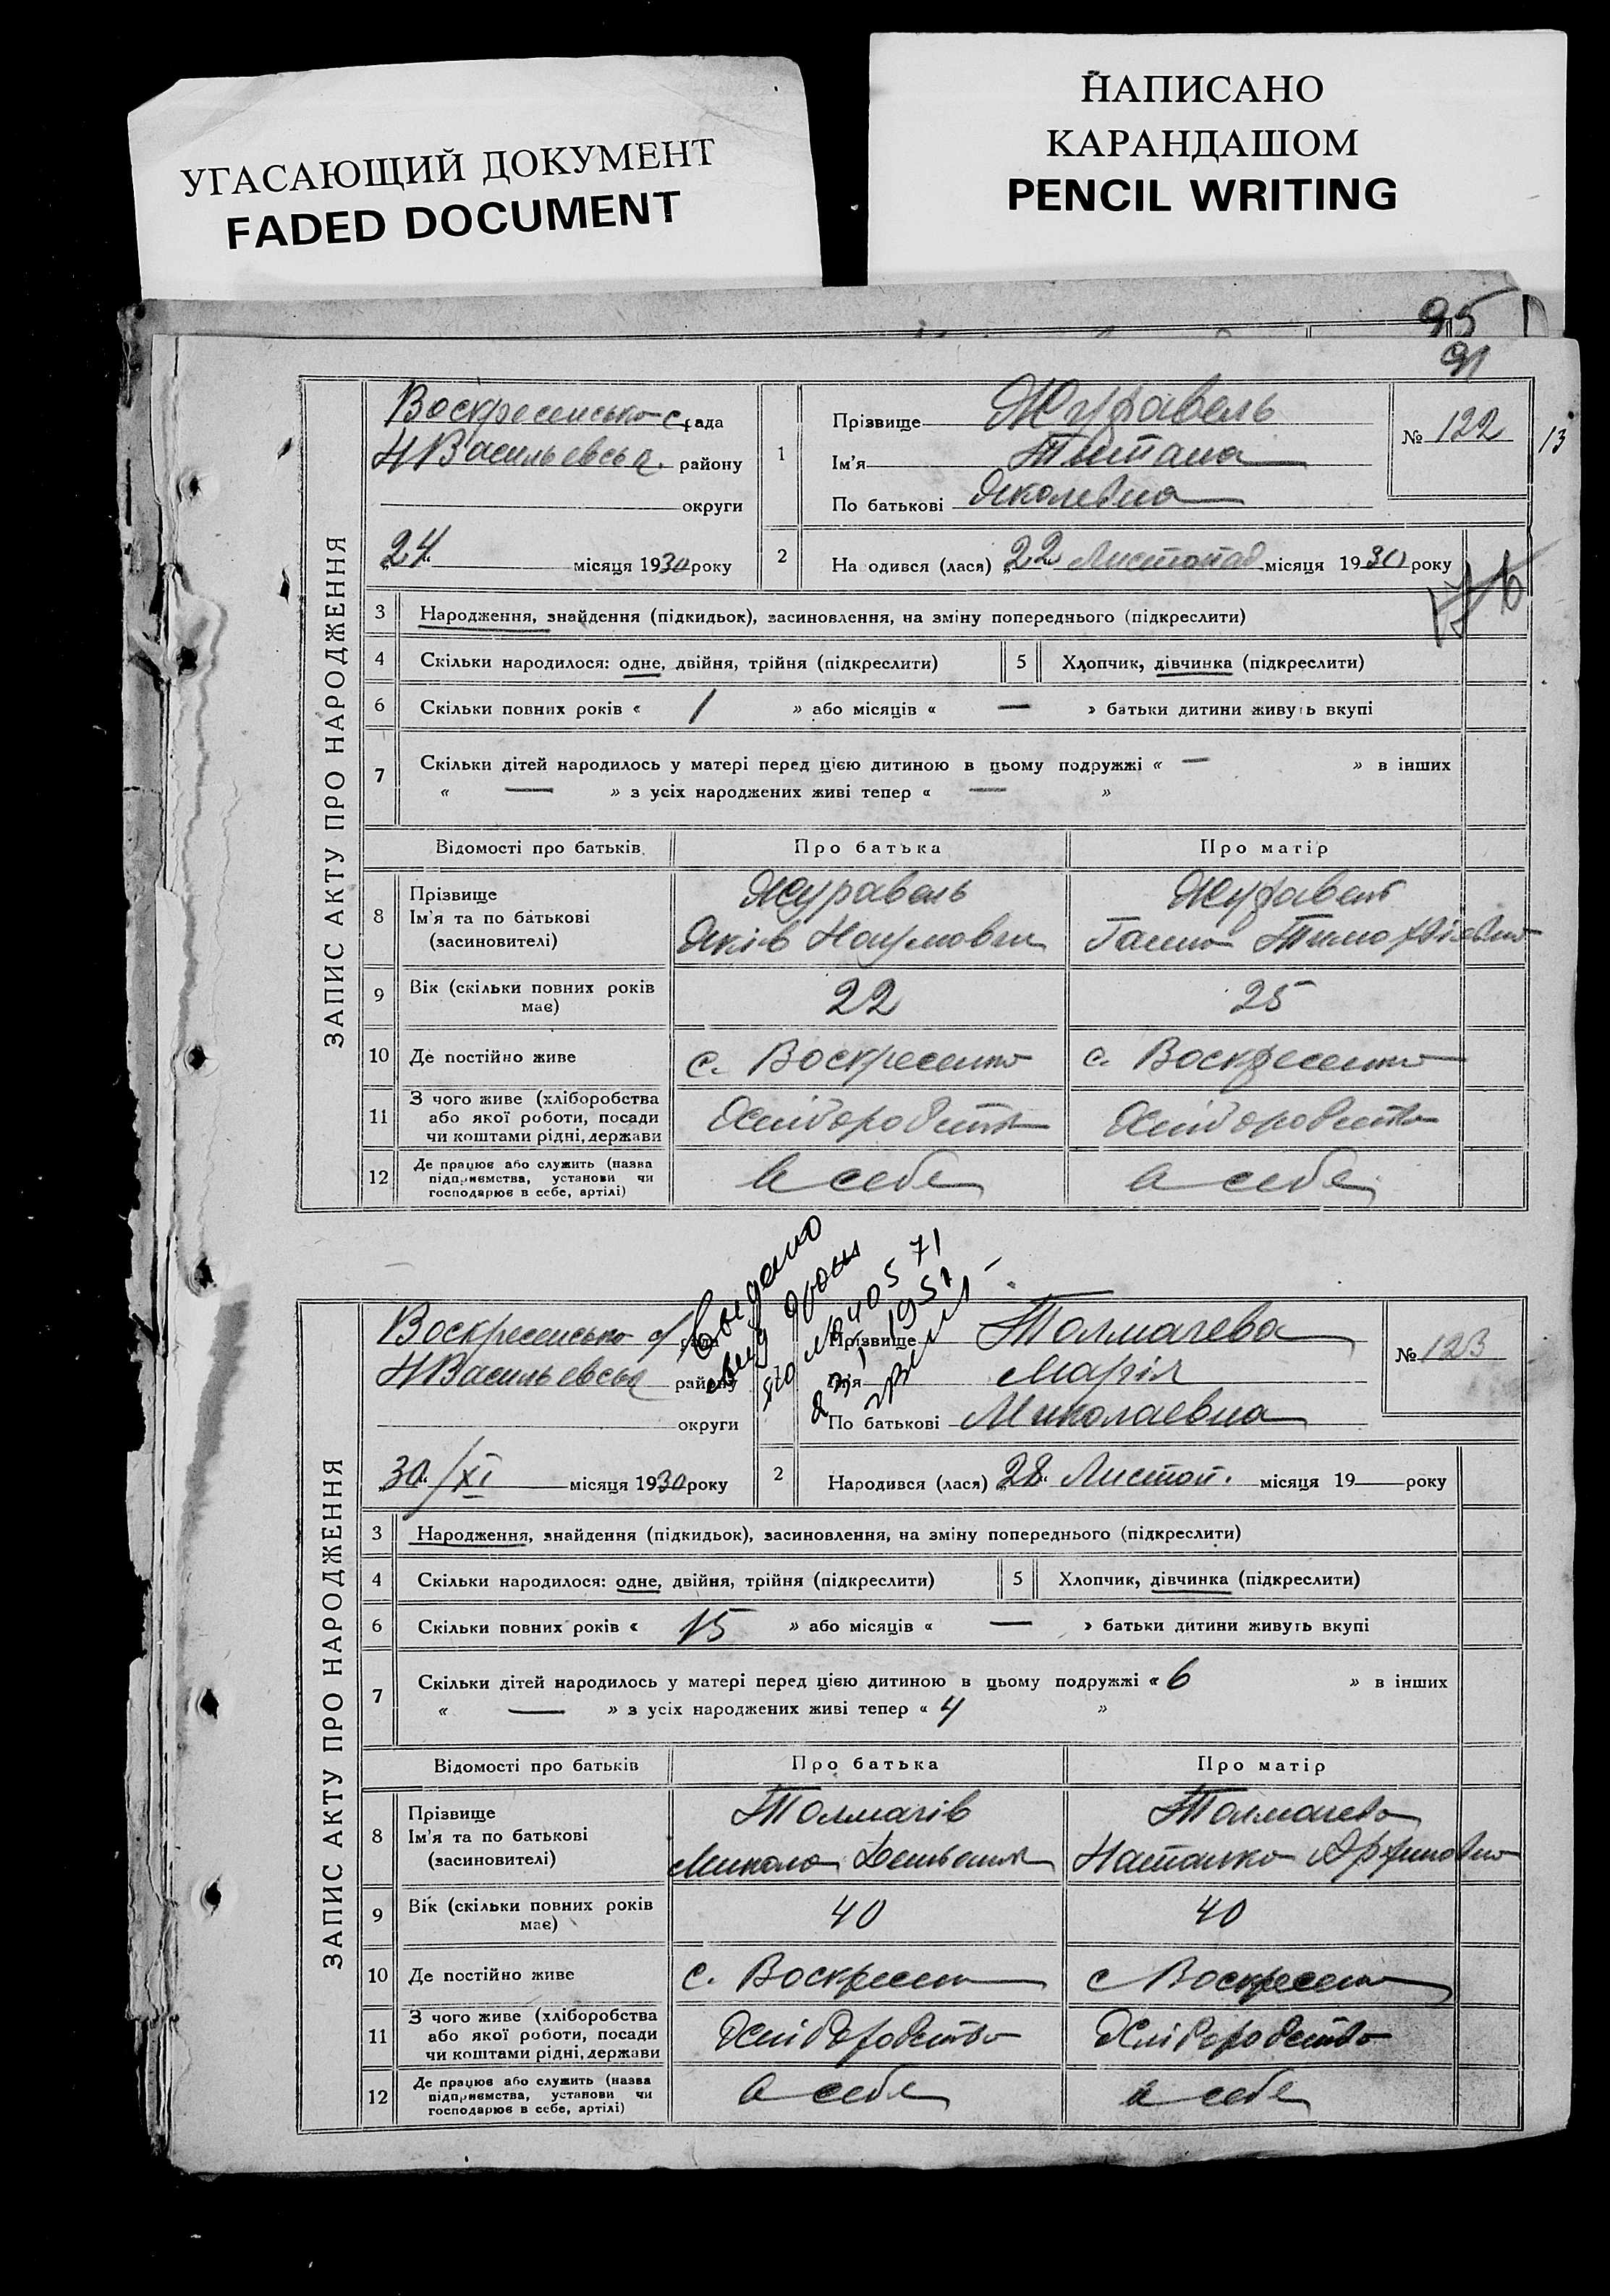 УГАСАЮЩИЙ ДОКУМЕНТ
FADED DOCUMENT
НАПИСАНО
КАРАНДАШОМ
PENCIL WRITING
95
91
ЗАПИС АКТУ ПРО НАРОДЖЕННЯ
Воскресенсько с. рада
НВасильевськ. району
округи
„24“ місяця 1930 року
1
Прізвище Журавель
Ім'я Титана
По батькові Яколевна
№ 122
13
2
На одився (лася) „22“ Листопад місяця 1930 року
3 Народження, знайдення (підкидьок), засиновлення, на зміну попереднього (підкреслити)
4 Скільки народилося: одне, двійня, трійня (підкреслити) 5 Хлопчик, дівчинка (підкреслити)
6 Скільки повних років « 1 » або місяців « — » батьки дитини живуть вкупі
7 Скільки дітей народилось у матері перед цією дитиною в цьому подружжі « — » в інших
« — » з усіх народжених живі тепер « — »
Відомості про батьків Про батька Про матір
8 Прізвище Журавель Журавель
Ім'я та по батькові Яків Наумович Ганна Тимофіївна
(засновителі)
9 Вік (скільки повних років має) 22 25
10 Де постійно живе с. Воскресенко с. Воскресенко
11 З чого живе (хліборобства
або якої роботи, посади
чи коштами рідні, держави Хліборобство Хліборобство
12 Де працює або служить (назва
підприємства, установи чи
господарює в себе, артілі) в себе в себе
ЗАПИС АКТУ ПРО НАРОДЖЕННЯ
Воскресенсько с/рада
НВасильевськ району
округи
„30“/XI місяця 1930 року
Выдано
№ 40571
1951
Прізвище Толмачева
Ім'я Марія
По батькові Миколаевна
№ 123
2
Народився (лася) „28“ Листоп. місяця 19 — року
3 Народження, знайдення (підкидьок), засиновлення, на зміну попереднього (підкреслити)
4 Скільки народилося: одне, двійня, трійня (підкреслити) 5 Хлопчик, дівчинка (підкреслити)
6 Скільки повних років « 15 » або місяців « — » батьки дитини живуть вкупі
7 Скільки дітей народилось у матері перед цією дитиною в цьому подружжі « 6 » в інших
« — » з усіх народжених живі тепер « 4 »
Відомості про батьків Про батька Про матір
8 Прізвище Толмачів Толмачева
Ім'я та по батькові Микола Наталка
(засиновителі)
9 Вік (скільки повних років має) 40 40
10 Де постійно живе с. Воскресен с Воскресен
11 З чого живе (хліборобства
або якої роботи, посади
чи коштами рідні, держави Хліборобство Хліборобство
12 Де працює або служить (назва
підприємства, установи чи
господарює в себе, артілі) в себе в себе